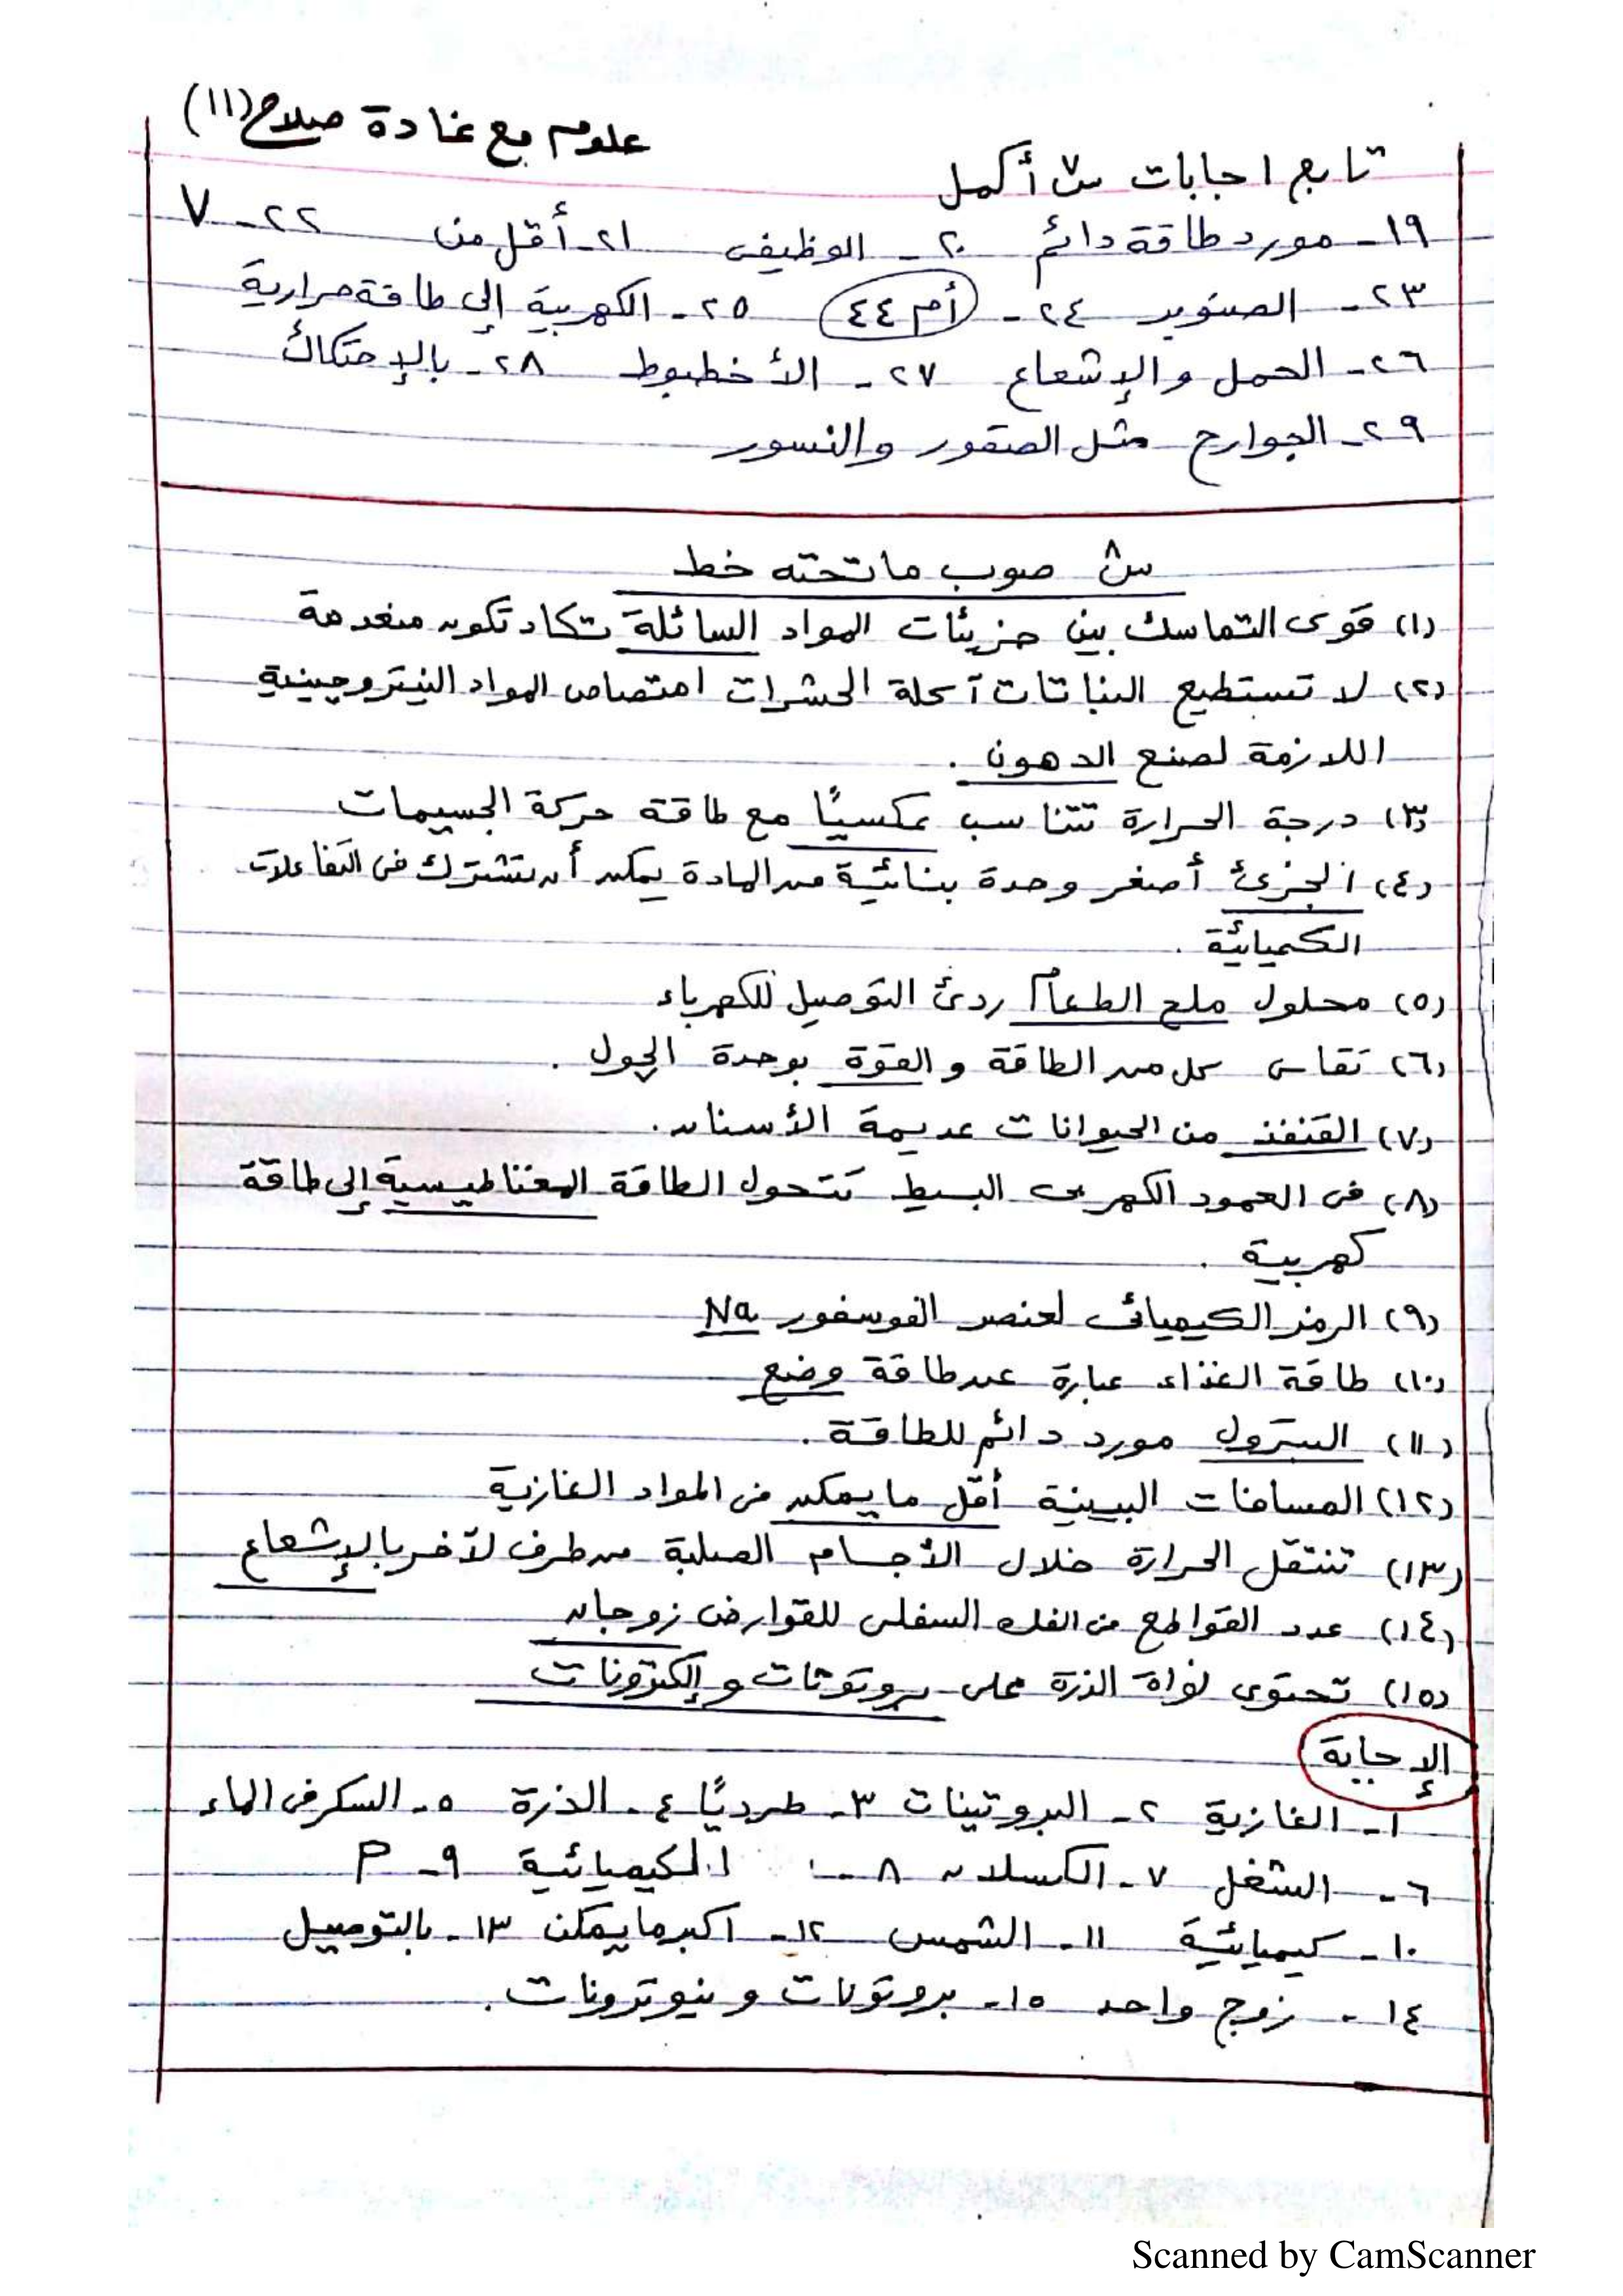 علوم مع غادة صلاح (١١)
تابع اجابات س٧ أكمل
١٩- مورد طاقة دائم ٢٠- الوظيفى ٢١- أقل من ٢٢- ٧
٢٣- الصنوبر ٢٤- أم ٤٤ ٢٥- الكهربية إلى طاقة حرارية
٢٦- الحمل والإشعاع ٢٧- الأخطبوط ٢٨- بالإحتكاك
٢٩- الجوارح مثل الصقور والنسور
س٨ صوب ما تحته خط
(١) قوى التماسك بين جزيئات المواد السائلة تكاد تكون منعدمة
(٢) لا تستطيع النباتات آكلة الحشرات امتصاص المواد النيتروجينية
اللازمة لصنع الدهون .
(٣) درجة الحرارة تتناسب عكسيًا مع طاقة حركة الجسيمات
(٤) الجزئ أصغر وحدة بنائية من المادة يمكن أن تشترك فى التفاعلات
الكميائية .
(٥) محلول ملح الطعام ردئ التوصيل للكهرباء
(٦) تقاس كل من الطاقة والقوة بوحدة الچول .
(٧) القنفذ من الحيوانات عديمة الأسنان .
(٨) فى العمود الكهربى البسيط تتحول الطاقة المغناطيسية إلى طاقة
كهربية .
(٩) الرمز الكيميائى لعنصر الفوسفور Na
(١٠) طاقة الغذاء عبارة عن طاقة وضع
(١١) البترول مورد دائم للطاقة .
(١٢) المسافات البينية أقل ما يمكن فى المواد الغازية
(١٣) تنتقل الحرارة خلال الأجسام الصلبة من طرف لآخر بالإشعاع
(١٤) عدد القواطع فى الفك السفلى للقوارض زوجان
(١٥) تحتوى نواة الذرة على بروتونات وإلكترونات
الإجابة
١- الغازية ٢- البروتينات ٣- طرديًا ٤- الذرة ٥- السكر فى الماء
٦- الشغل ٧- الكسلان ٨- الكيميائية ٩- P
١٠- كيميائية ١١- الشمس ١٢- اكبر ما يمكن ١٣- بالتوصيل
١٤- زوج واحد ١٥- بروتونات ونيوترونات .
Scanned by CamScanner